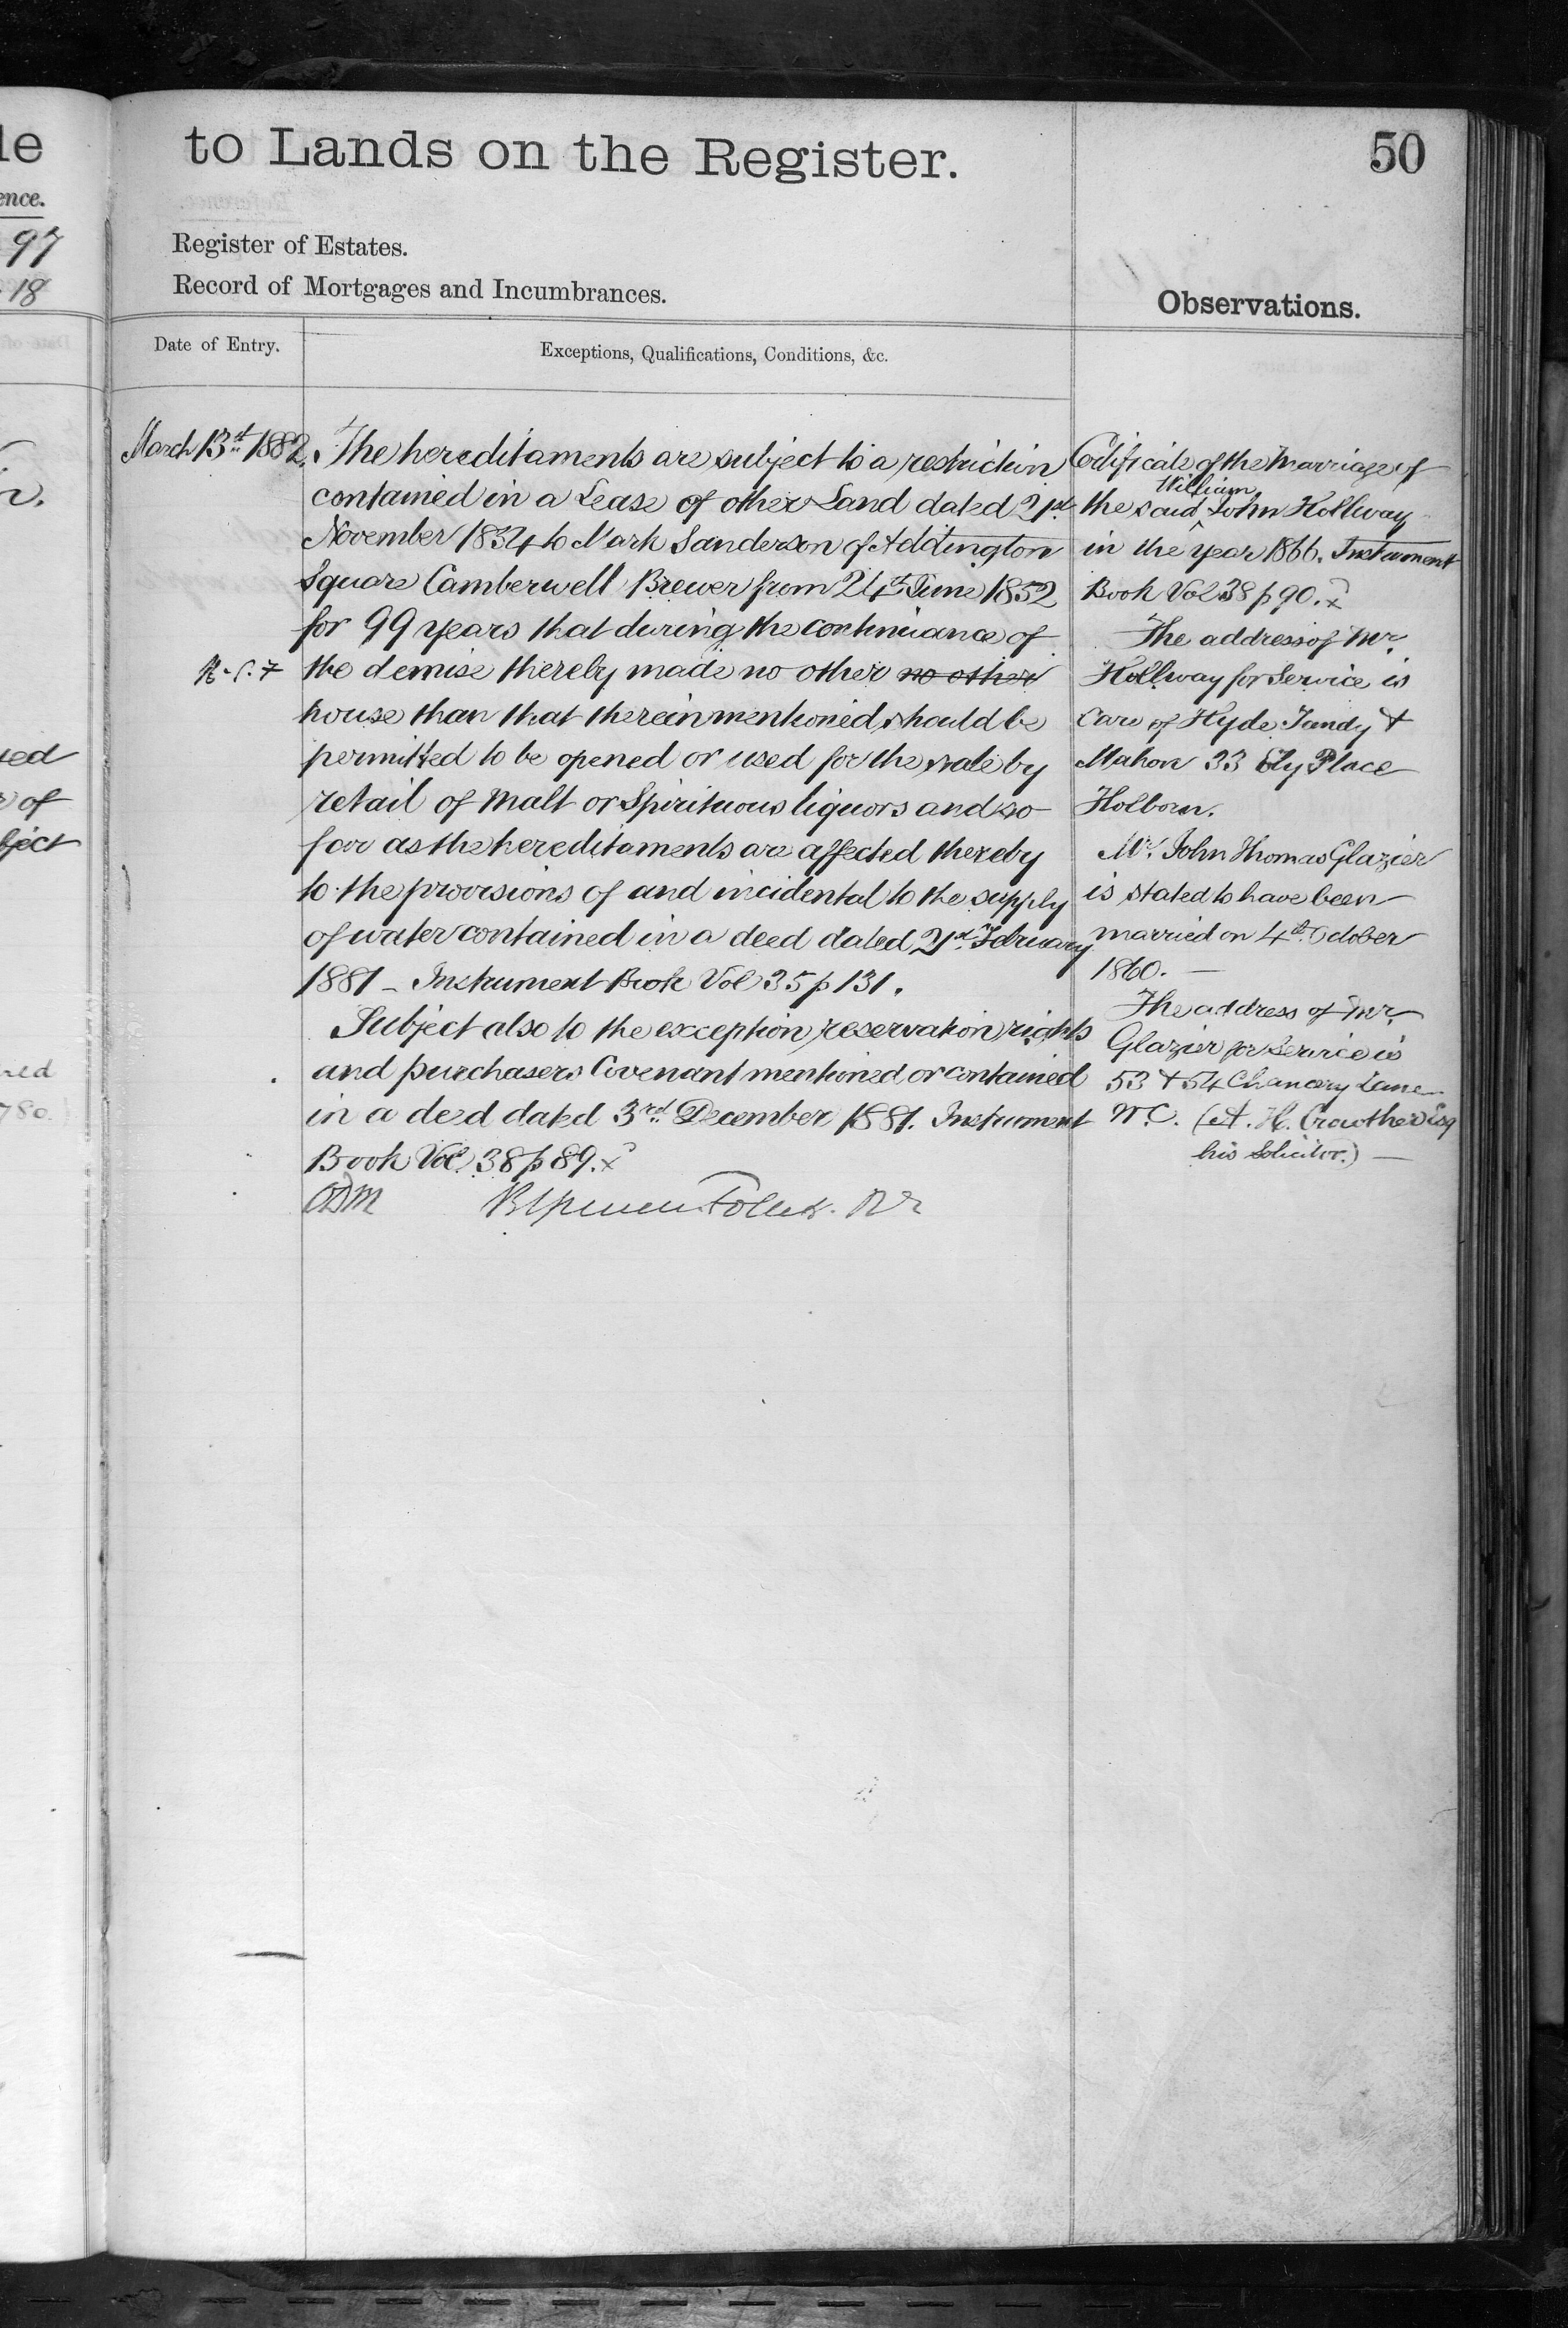 le
to Lands on the Register.
50
ence.
97
18
Register of Estates.
Record of Mortgages and Incumbrances.
Observations.
Date of Entry.
Exceptions, Qualifications, Conditions, &c.
March 13th 1882.
The hereditaments are subject to a restriction
contained in a Lease of other Land dated 21st
November 1854 to Mark Sanderson of Addington
Square Camberwell Brewer from 24th June 1852
for 99 years that during the continuance of
the demise thereby made no other no other
house than that therein mentioned should be
permitted to be opened or used for the sale by
retail of Malt or Spirituous liquors and so
far as the hereditaments are affected thereby
to the provisions of and incidental to the supply
of water contained in a deed dated 21st February
1881 – Instrument Book Vol 35 p 131.
Subject also to the exception reservation rights
and purchasers Covenant mentioned or contained
in a deed dated 3rd December 1881. Instrument
Book Vol 38 p 89.
Certificate of the Marriage of
William
the said ^ John Hollway
in the year 1866. Instrument
Book Vol 38 p 90.
The address of Mr.
Hollway for Service is
care of Hyde Tandy &
Mahon 33 Ely Place
Holborn.
Mr. John Thomas Glazier
is stated to have been
married on 4th October
1860. —
The address of Mr.
Glazier for Service is
53 & 54 Chancery Lane
W.C. (A. H. Crowther Esq
his Solicitor.) —
of
ject